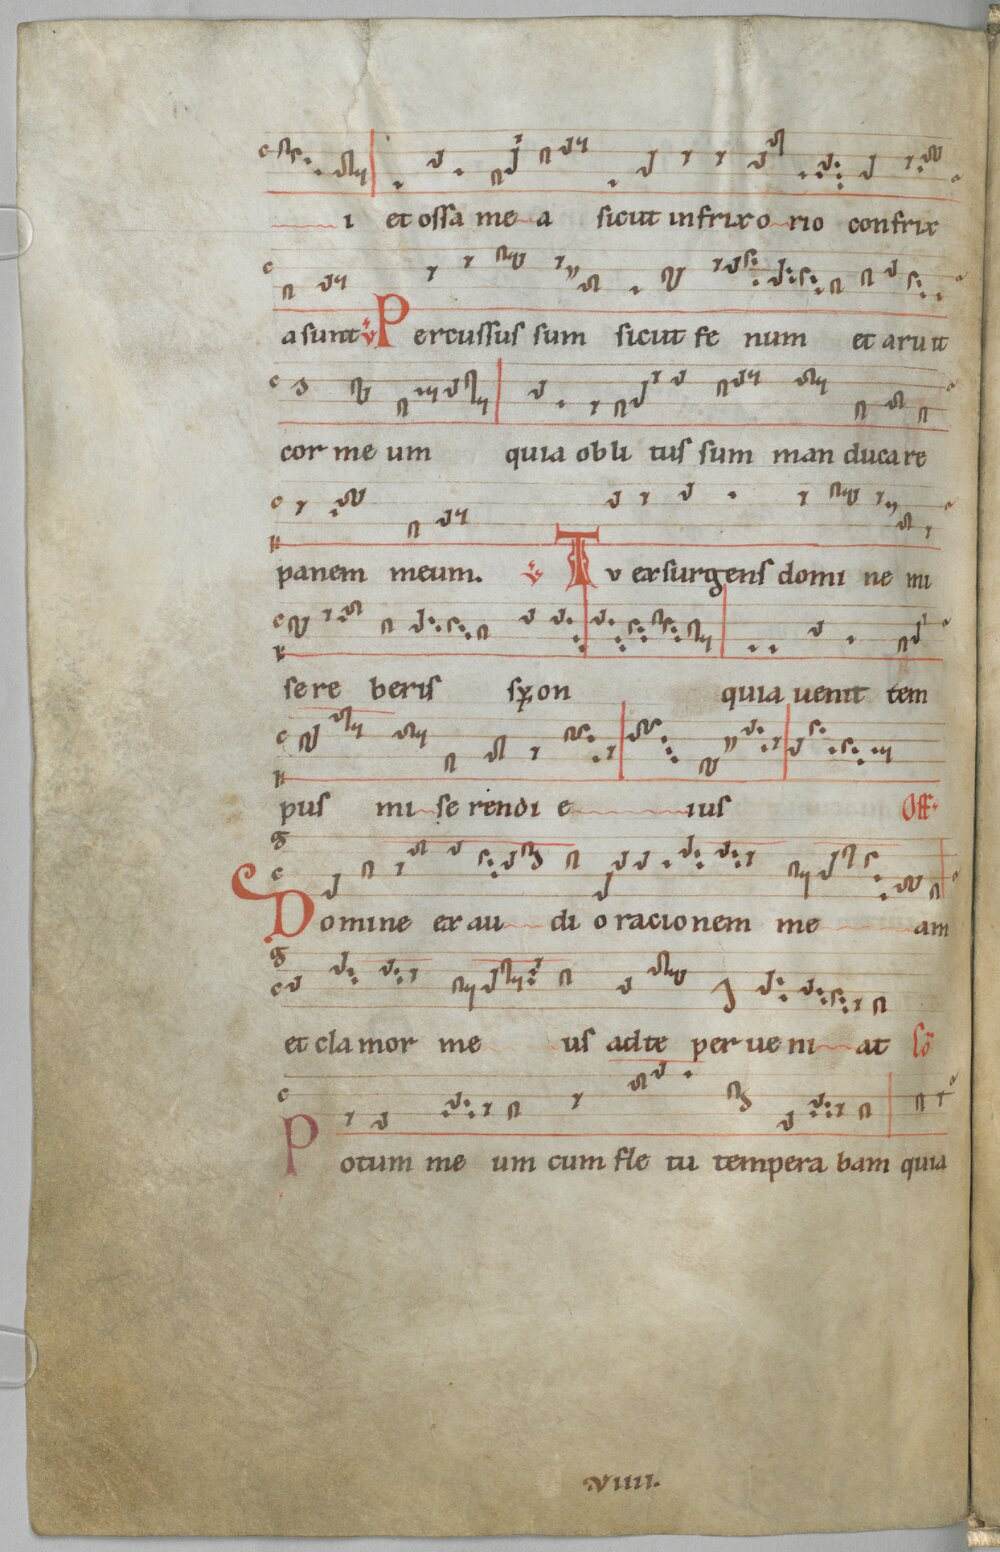 i et ossa me a sicut in frixo rio confrix
a sunt v Percussus sum sicut fe num et aruit
cor me um quia obli tus sum man ducare
panem meum. v Tv exsurgens domi ne mi
sere beris syon quia uenit tem
pus mi se rendi e ius Off
Domine exau di oracionem me am
et clamor me us ad te per ue ni at Cō
Potum me um cum fle tu tempera bam quia
viiii.